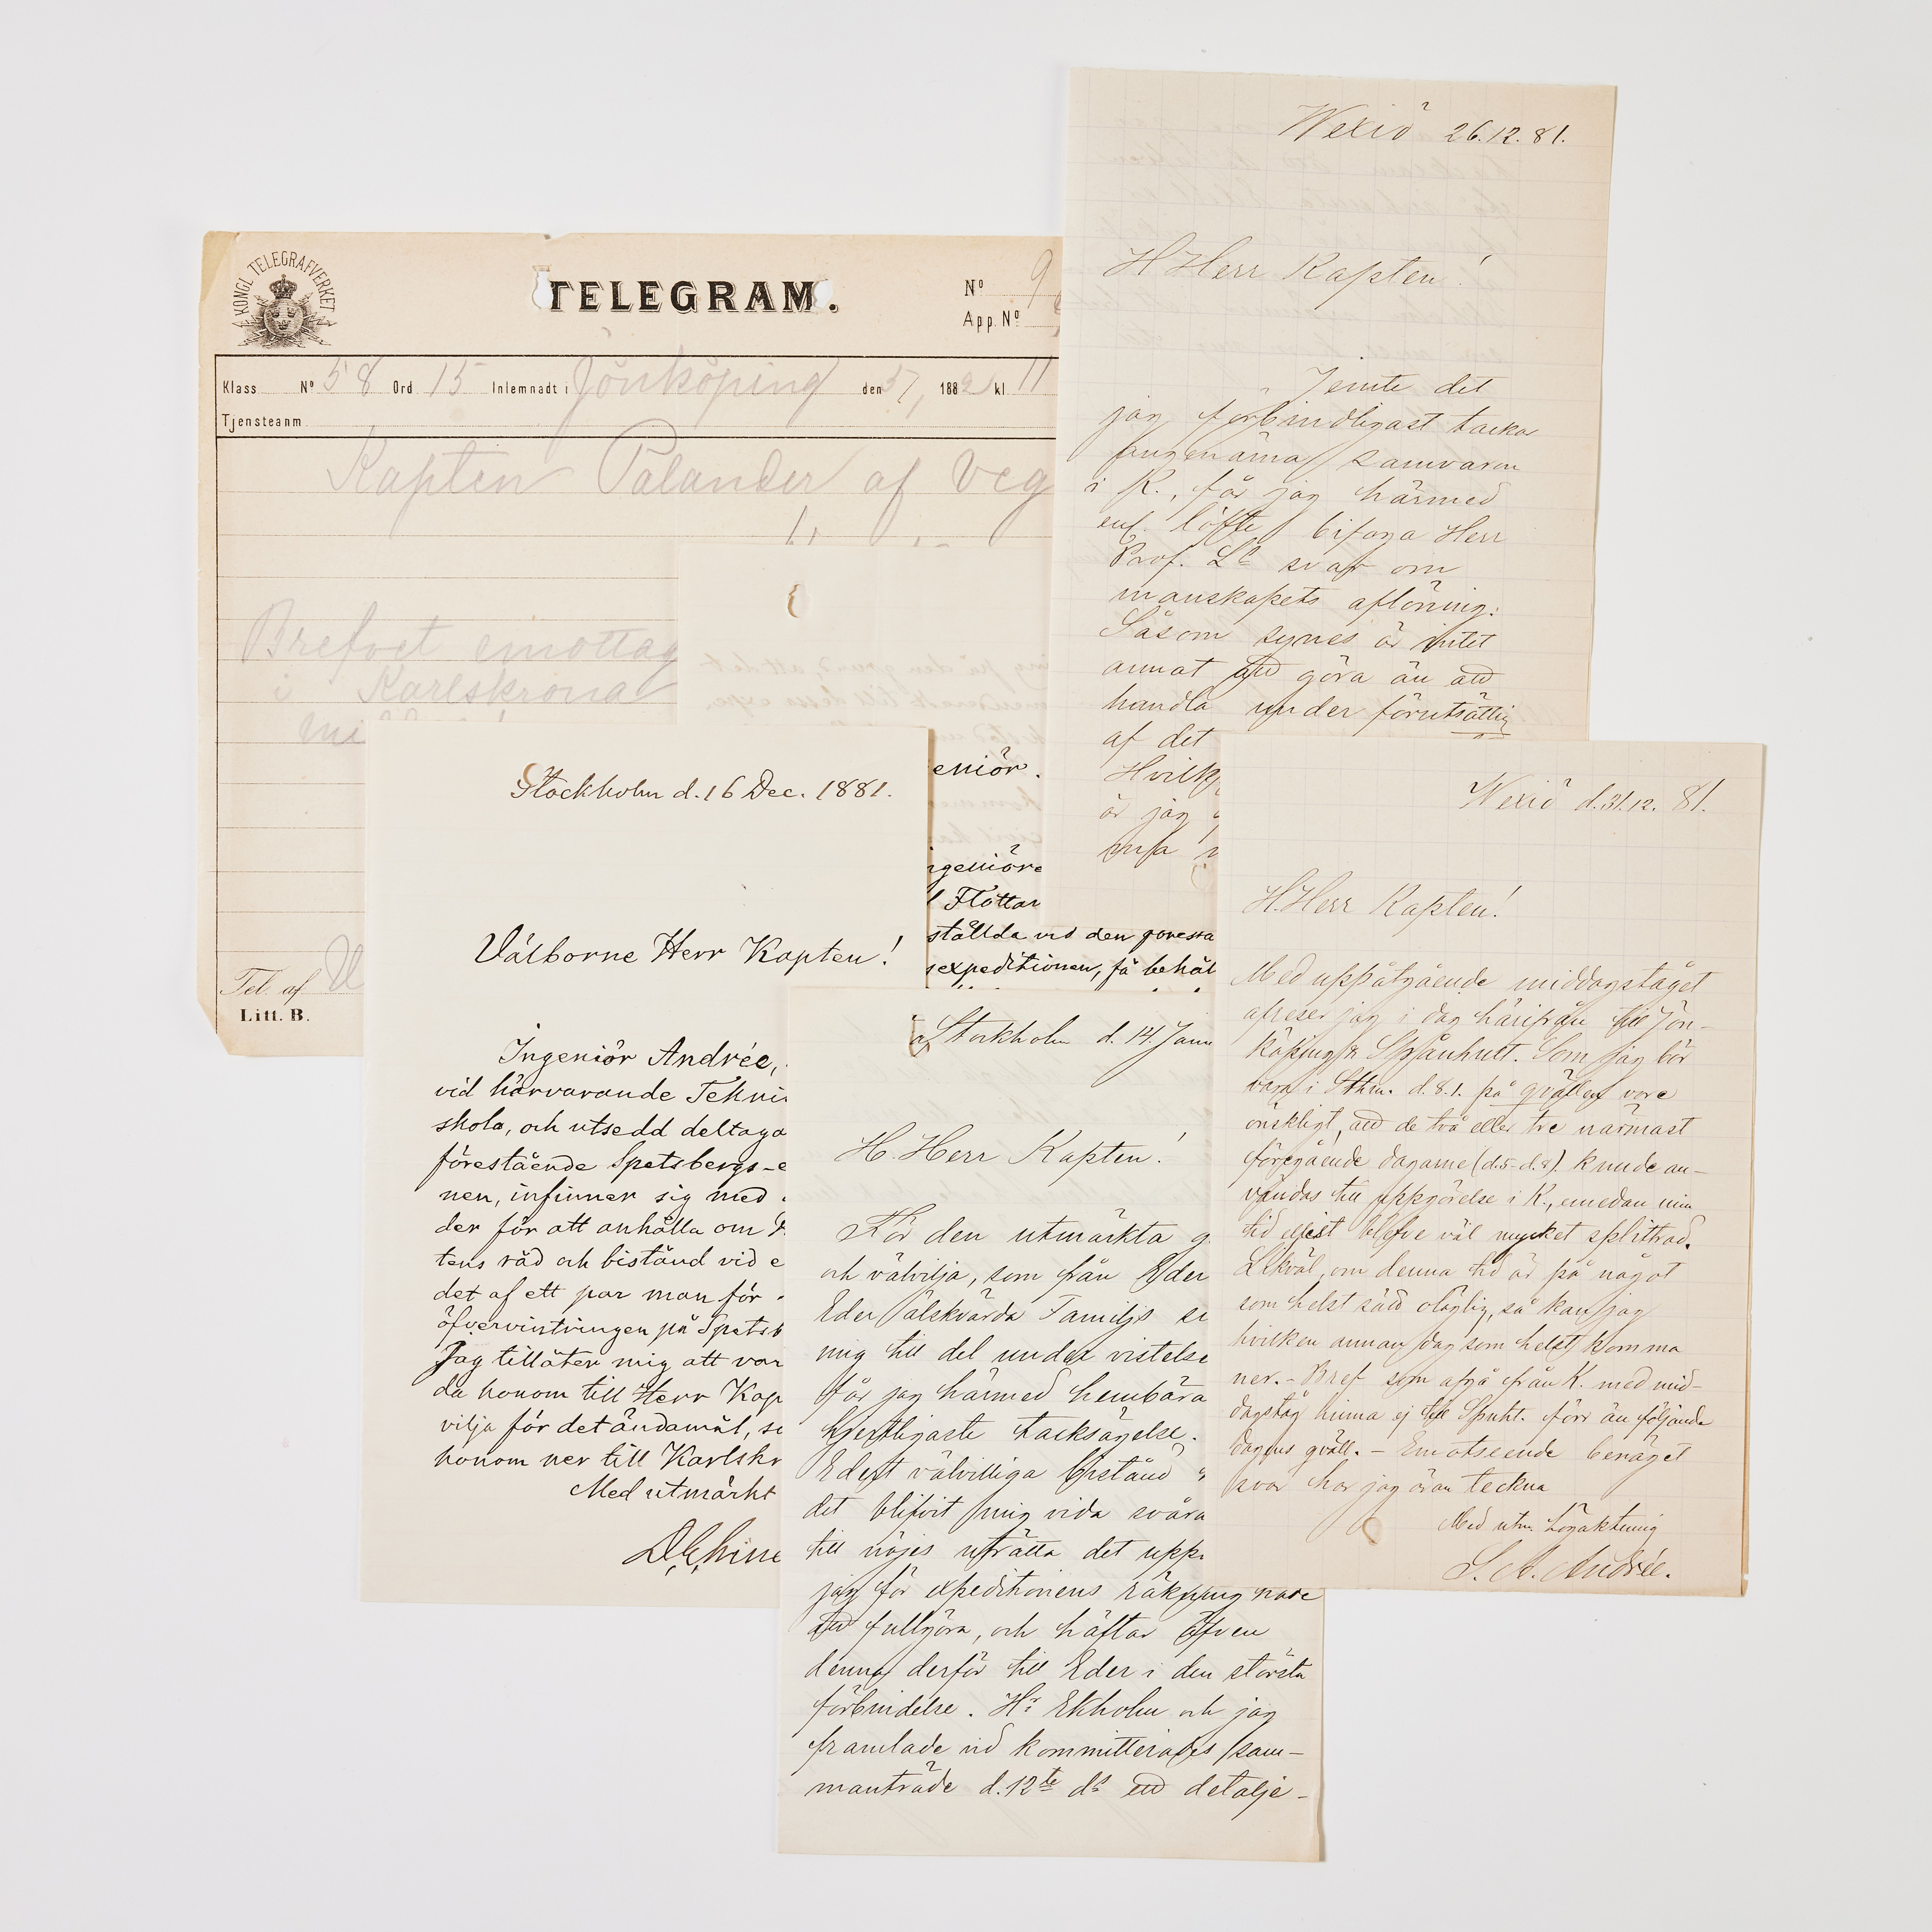 KONGL. TELEGRAFVERKET
TELEGRAM.
Nº 9
App. Nº
Klass Nº 58 Ord 15 Inlemnadt i Jönköping den 5/1 1882 kl. 11
Tjensteanm.
Kapten Palander af Veg
Brefvet emottag
i Karlskrona
Tel. af
Litt. B.
Wexiö 26.12.81.
H Herr Kapten!
Jemte det
jag förbindligast tackar
angenäma samvaron
i K., får jag härmed
enl. löfte bifoga Herr
Prof. Ls svar om
manskapets aflöning.
Såsom synes är intet
annat att göra än att
handla under förutsättn
af det
Hvilk
är jag
eniör.
ngeniöre
Flottan
ställda vid den
expeditionen, få behål
Stockholm d. 16 Dec. 1881.
Välborne Herr Kapten!
Ingeniör Andrée,
vid härvarande Tekni
skola, och utsedd deltaga
förestående Spetsbergs-e
nen, infinner sig med
der för att anhålla om
tens råd och bistånd vid e
det af ett par man för
öfvervintringen på Spetsb
Jag tillåter mig att vor
da honom till Herr Kap
vilja för det ändamål, so
honom ner till Karlskr
Med utmärkt
Stockholm d. 14. Janu
H. Herr Kapten!
För den utmärkta g
och välvilja, som från Eder
Eder älskvärda Familjs si
mig till del under vistelse
får jag härmed hembära
hjertligaste tacksägelse.
Edert välvilliga bistånd
det blifvit mig vida svåra
till nöjes uträtta det upp
jag för expeditionens räkning hade
att fullgöra, och häftar äfven
denna derför till Eder i den största
förbindelse. Hr Ekholm och jag
framlade vid kommitterades sam-
manträde d. 12te ds ett detalje-
Wexiö d. 31.12. 81.
H. Herr Kapten!
Med uppåtgående middagståget
afreser jag i dag härifrån till Jön-
köping & Spånhult. Som jag bör
vara i Sthm. d. 8.1. på qvällen vore
önskligt, att de två eller tre närmast
föregående dagarne (d. 5-d. 8). kunde an-
vändas till uppgörelse i K., emedan min
tid eljest blefve väl mycket splittrad.
Likväl, om denna tid är på något
som helst sätt oläglig, så kan jag
hvilken annan dag som helst komma
ner. - Bref som afgå från K. med mid-
dagståg hinna ej till Spnht. förr än följande
dagens qväll. - Emotseende benäget
svar har jag äran teckna
Med utm. högaktning
S. A. Andrée.